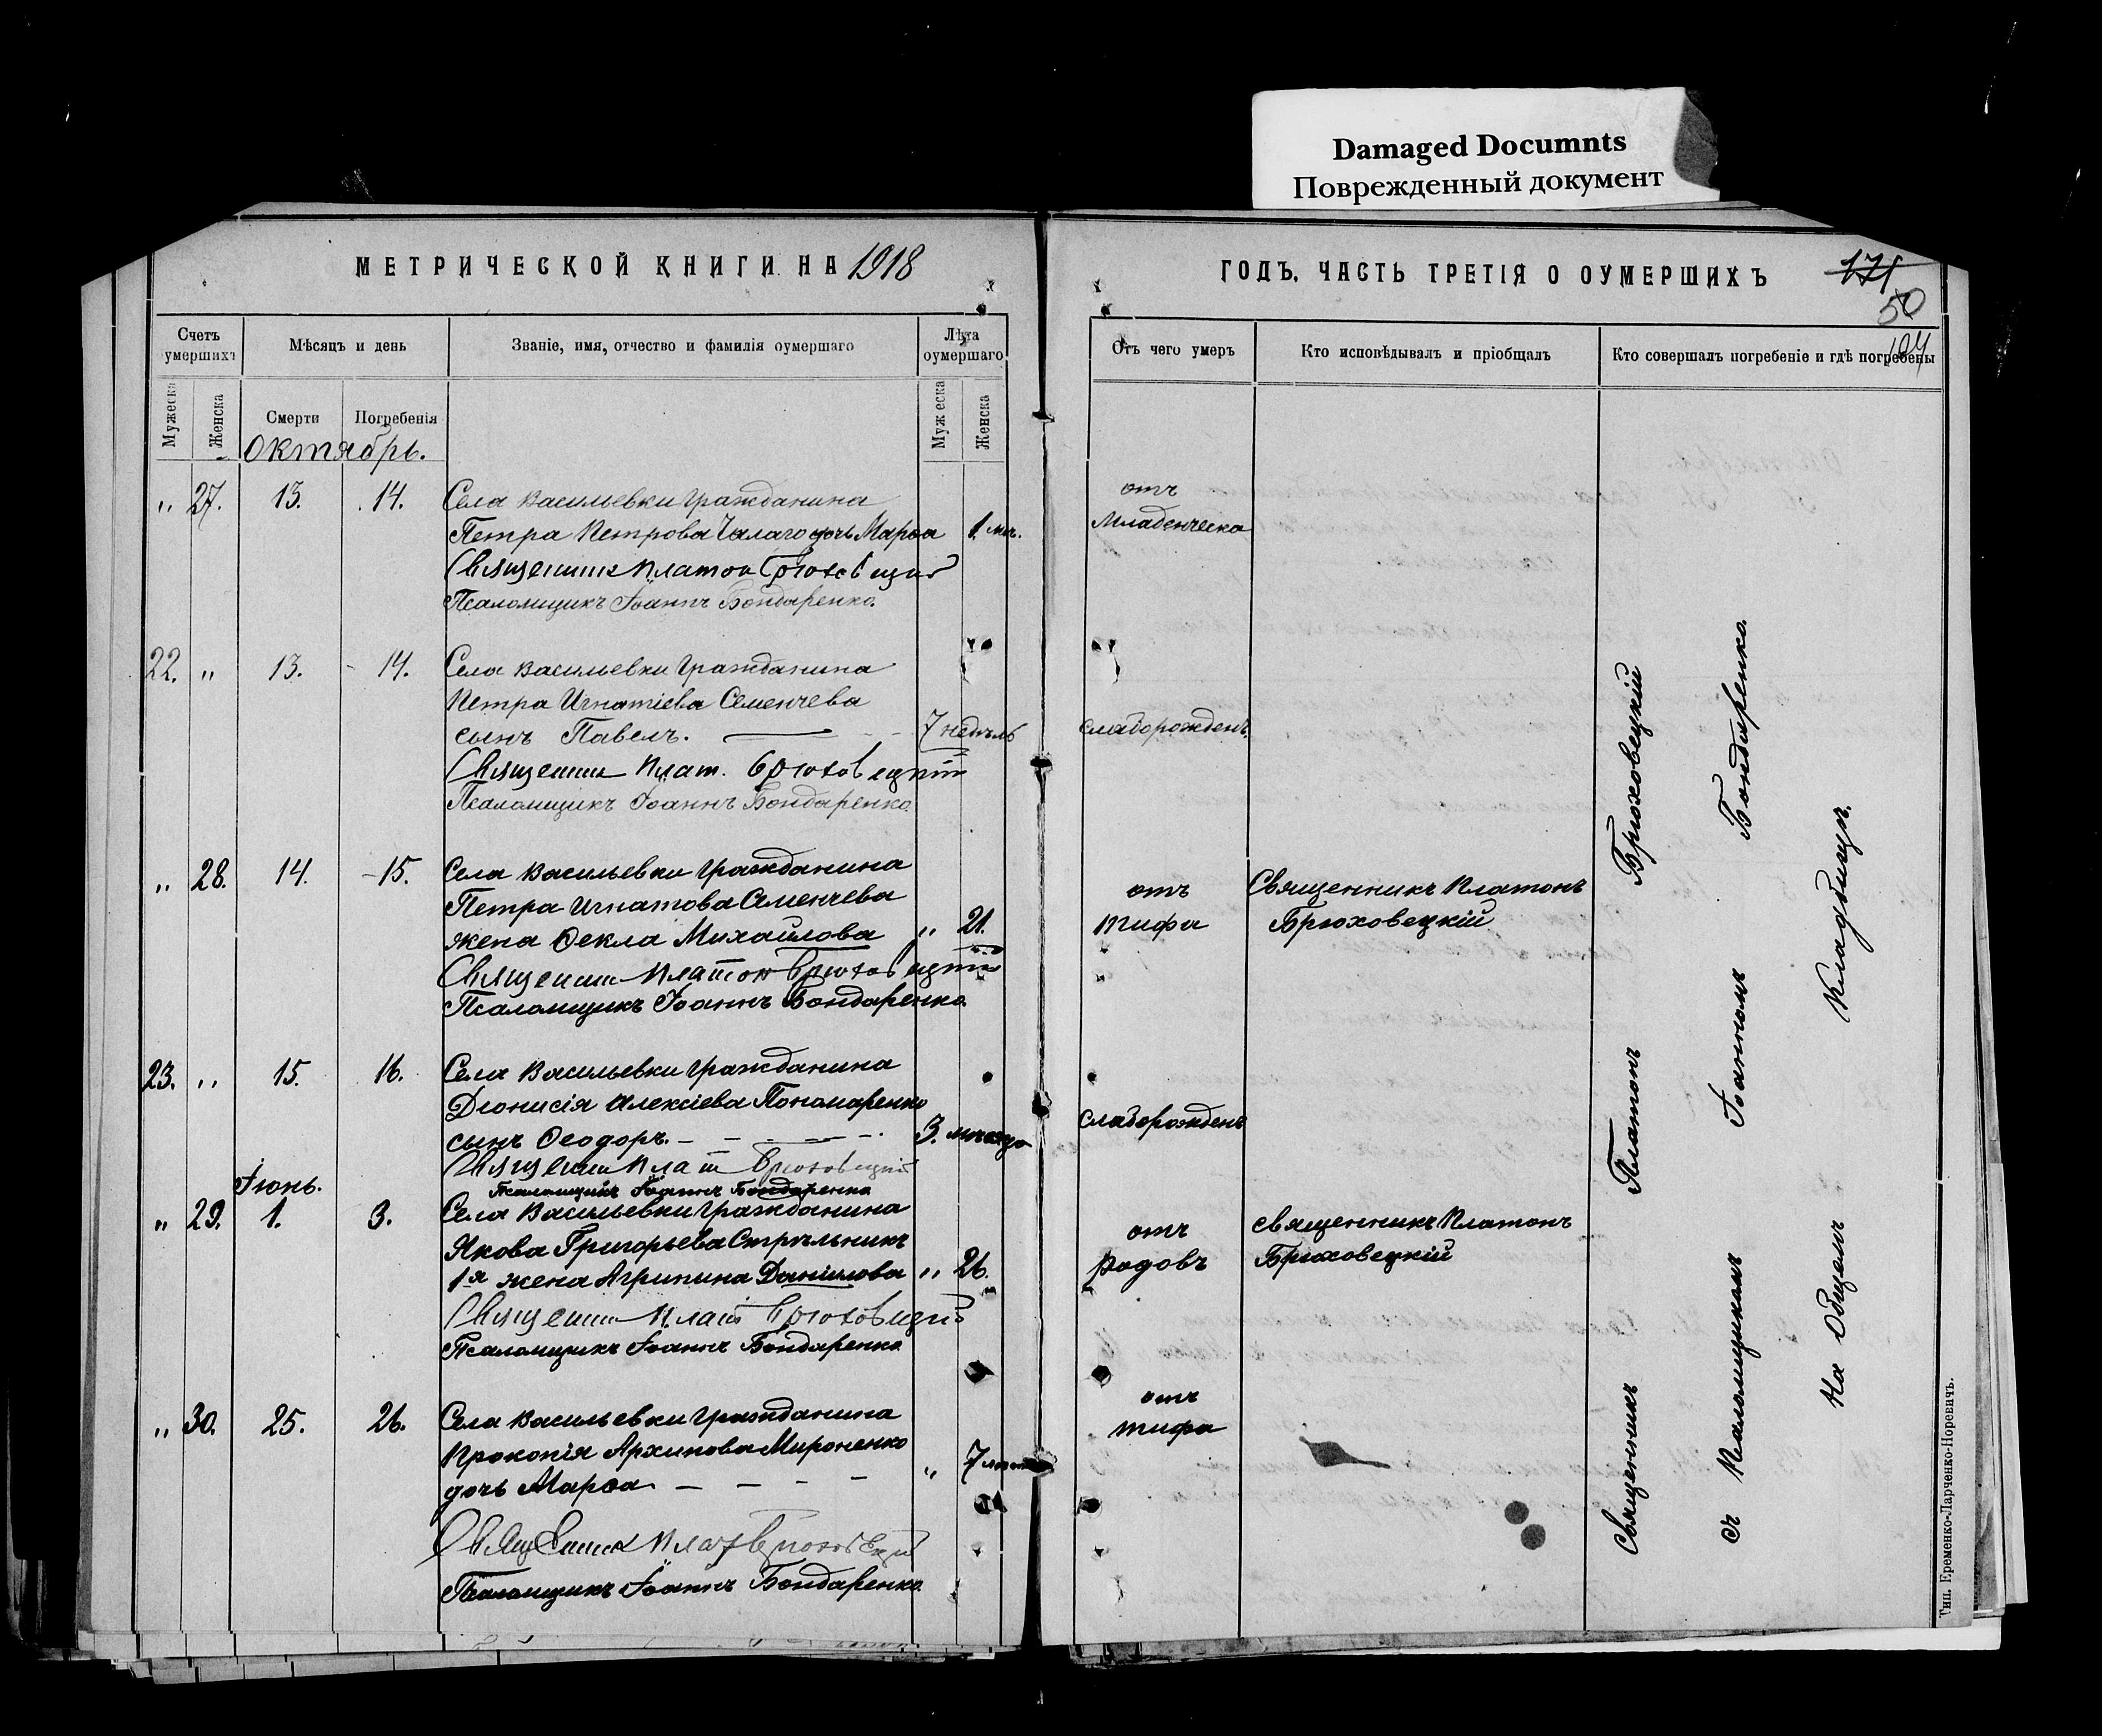 Damaged Documnts
Поврежденный документ
МЕТРИЧЕСКОЙ КНИГИ НА 1918
Счетъ умершихъ
Мѣсяцъ и день
Званіе, имя, отчество и фамилія оумершаго
Лѣта оумершаго
Мужеска
Женска
Смерти
Погребенія
Мужеска
Женска
Октябрь.
„ 27. 13. 14. Села Васильевки гражданина
Петра Петрова дочь Марѳа 1 мѣ.
Священникъ Платон Брюховецкий
Псаломщикъ Іоаннъ Бондаренко.
22. „ 13. 14. Села Васильевки гражданина
Петра Игнатіева Семенчева
сынъ Павелъ. 7 недѣль
Священник Плат. Брюховецкий
Псаломщикъ Іоаннъ Бондаренко
„ 28. 14. 15. Села Васильевки гражданина
Петра Игнатова Семенчева
жена Ѳекла Михайлова „ 21.
Священник Платон Брюховецкий
Псаломщикъ Іоаннъ Бондаренко
23. „ 15. 16. Села Васильевки гражданина
Діонисія Алексіева Пономаренко
сынъ Ѳеодоръ. 3.
Священник Плат Брюховецкий
Псаломщикъ Іоаннъ Бондаренко
Іюнь.
„ 29. 1. 3. Села Васильевки гражданина
Якова Григорьева Стрѣльникъ
1я жена Агрипина Даніилова „ 26.
Священник Плат Брюховецкий
Псаломщикъ Іоаннъ Бондаренко
„ 30. 25. 26. Села Васильевки гражданина
Прокопія Архипова Мироненко
дочь Марѳа „ 7
Священник Плат Брюховецкий
Псаломщикъ Іоаннъ Бондаренко
ГОДЪ. ЧАСТЬ ТРЕТІЯ О ОУМЕРШИХЪ
171
50
104
Отъ чего умеръ
Кто исповѣдывалъ и пріобщалъ
Кто совершалъ погребеніе и гдѣ погребены
отъ
младенческо
слаборожденъ.
отъ Священникъ Платонъ
тифа Брюховецкій
слаборожденъ
отъ священникъ Платонъ
родовъ Брюховецкій
отъ
тифа
Священникъ Платонъ Брюховецкій
съ Псаломщикомъ Іоанномъ Бондаренко.
На Общемъ Кладбищѣ.
Тип. Еременко-Ларченко-Норевичъ.